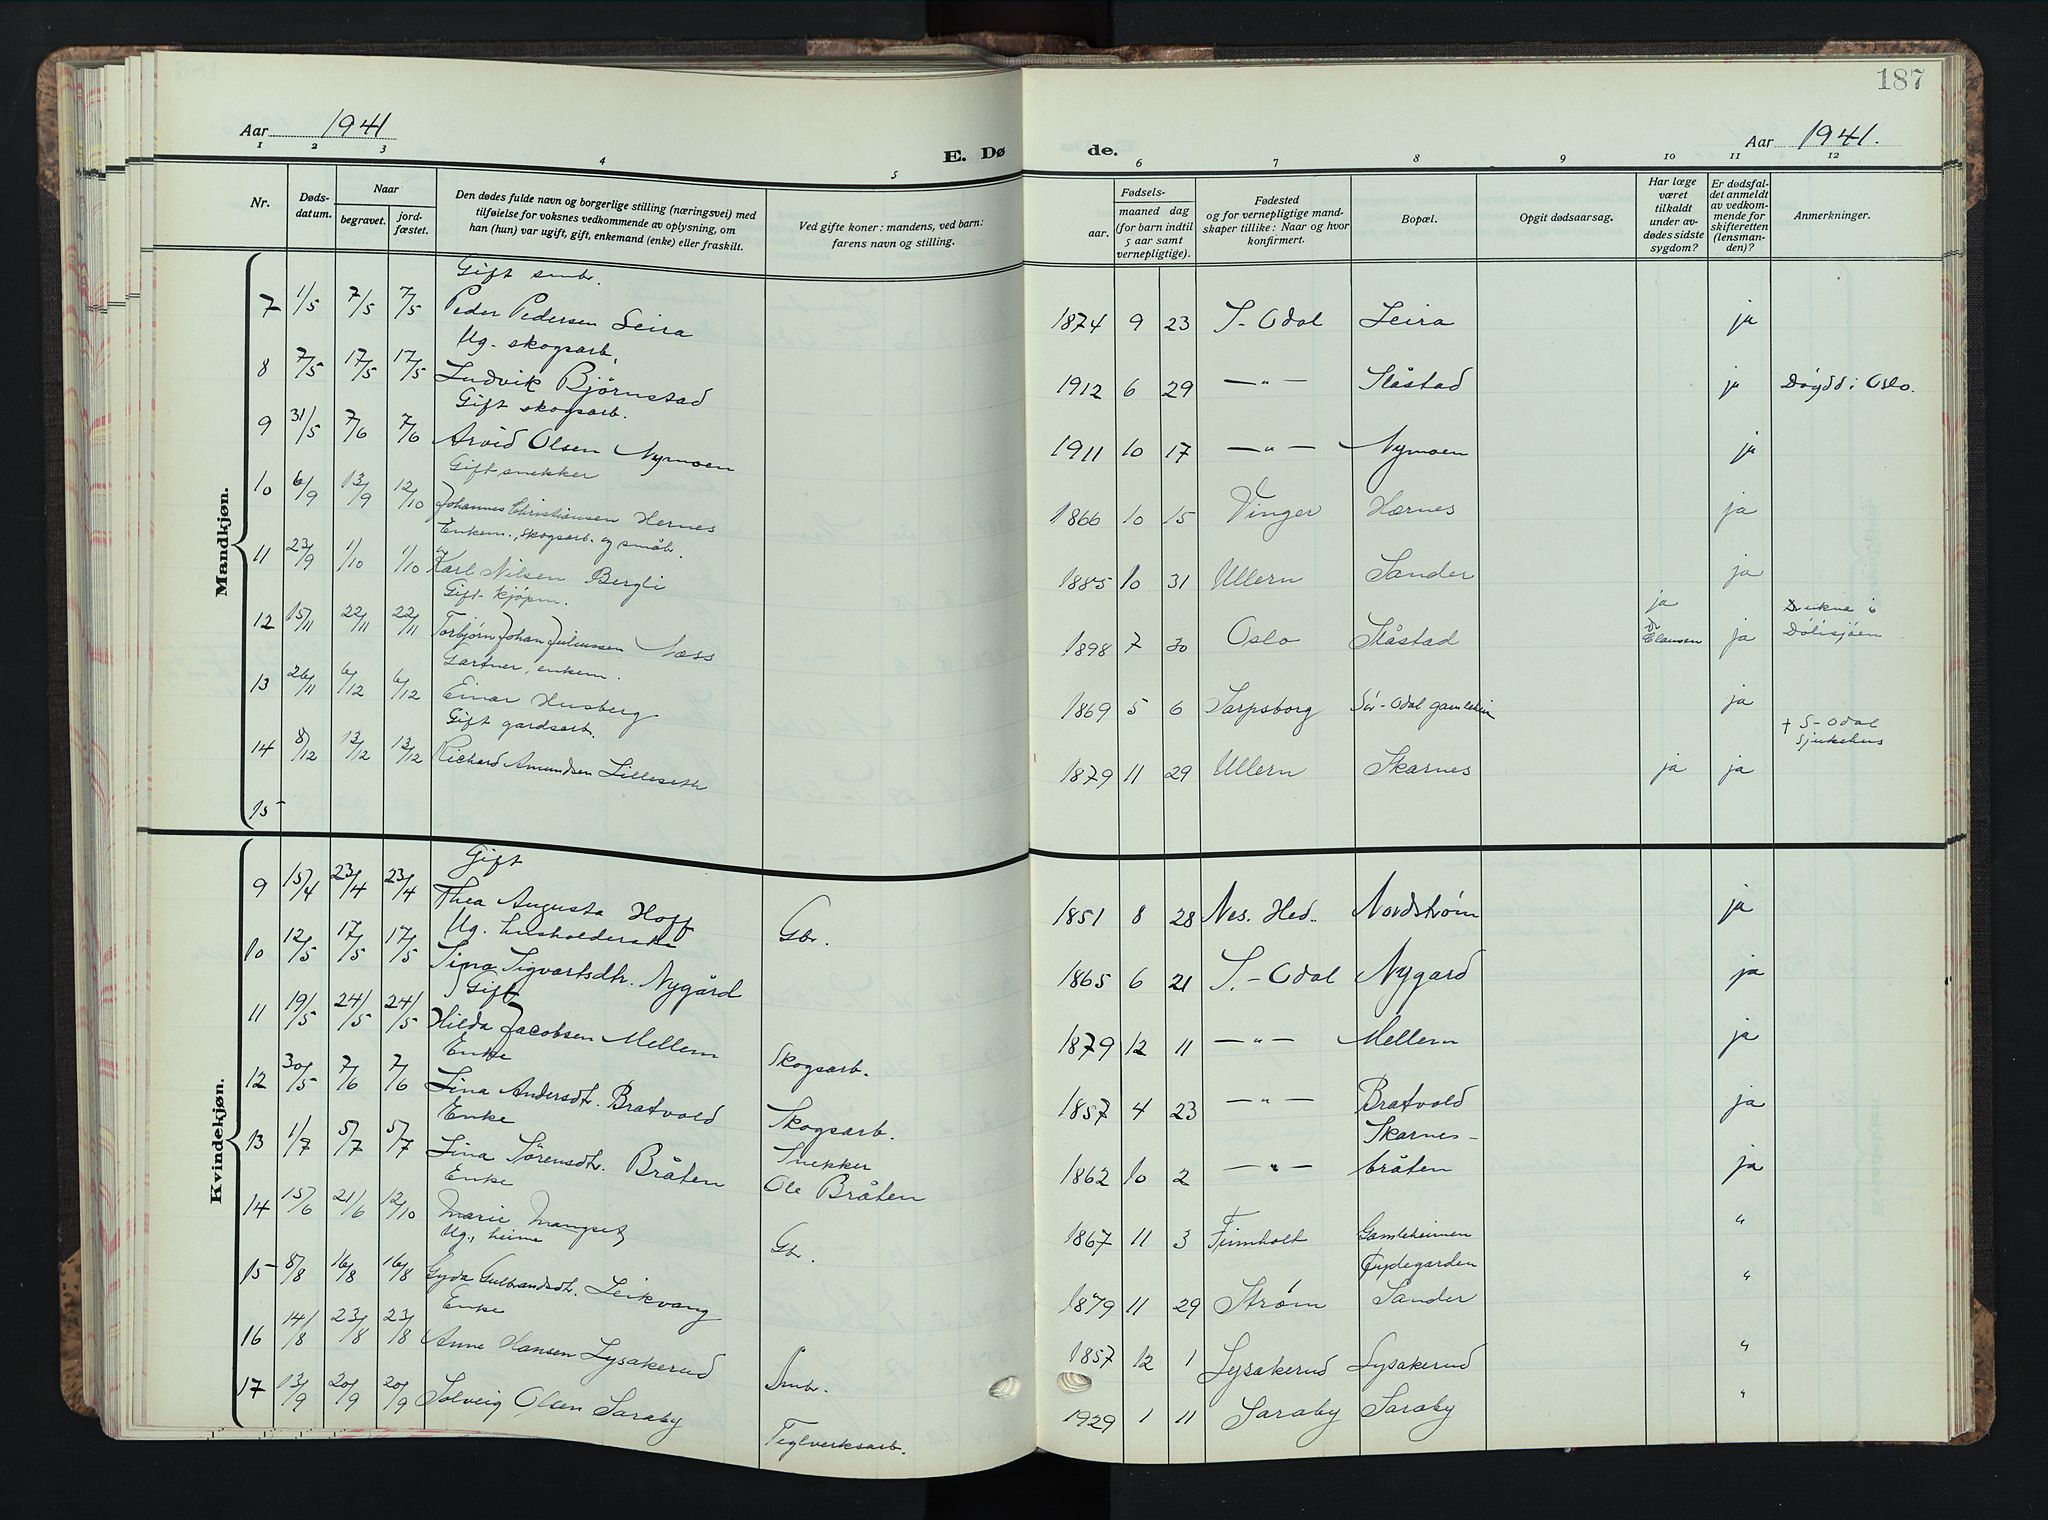 187
Aar 1941
E. Dø de.
Aar 1941.
1 2 3 4 5 6 7 8 9 10 11 12
Nr.
Døds-
datum.
Naar
begravet.
jord-
fæstet.
Den dødes fulde navn og borgerlige stilling (næringsvei) med
tilføielse for voksnes vedkommende av oplysning, om
han (hun) var ugift, gift, enkemand (enke) eller fraskilt.
Ved gifte koner: mandens, ved barn:
farens navn og stilling.
Fødsels-
aar.
maaned dag
(for barn indtil
5 aar samt
vernepligtige).
Fødested
og for vernepligtige mand-
skaper tillike: Naar og hvor
konfirmert.
Bopæl.
Opgit dødsaarsag.
Har læge
været
tilkaldt
under av-
dødes sidste
sygdom?
Er dødsfal-
det anmeldt
av vedkom-
mende for
skifteretten
(lensman-
den)?
Anmerkninger.
Mandkjøn.
Gift smbr.
7 1/5 7/5 7/5 Peder Pedersen Leira 1874 9 23 S-Odal Leira ja
Ug. skogsarb.
8 7/5 17/5 17/5 Ludvik Bjørnstad 1912 6 29 —"— Slåstad ja Døydd i Oslo.
Gift skogsarb.
9 31/5 7/6 7/6 Arvid Olsen Nymoen 1911 10 17 —"— Nymoen ja
Gift snekker
10 6/9 13/9 12/10 Johannes Christiansen Hernes 1866 10 15 Vinger Hernes ja
Enkem., skogsarb. og småbr.
11 23/9 1/10 1/10 Karl Nilsen Bergli 1885 10 31 Ullern Sander ja
Gift kjøpm.
12 15/11 22/11 22/11 Torbjørn Johan Juliussen Næss 1898 7 30 Oslo Slåstad ja Dr Clausen ja Drukna i Dølisjøen
Gartner, enkem.
13 26/11 6/12 6/12 Einar Husberg 1869 5 6 Sarpsborg Sør-Odal gamleheim ja
Gift gardsarb.
14 8/12 13/12 13/12 Richard Amundsen Lilleseth 1879 11 29 Ullern Skarnes ja ja + S-Odal Sjukehus
15
Kvindekjøn.
Gift
9 15/4 23/4 23/4 Thea Augusta Hoff Gbr. 1851 8 28 Nes. Hed. Nordstrøm ja
Ug. husholderske
10 12/5 17/5 17/5 Sina Sigvartsdtr. Nygård 1865 6 21 S.-Odal Nygard ja
Gift
11 19/5 24/5 24/5 Hilda Jacobsen Mellem Skogsarb. 1879 12 11 —"— Mellem ja
Enke
12 30/5 7/6 7/6 Lina Andersdtr. Bratvold Skogsarb. 1857 4 23 —"— Bratvold ja
Enke
13 1/7 5/7 5/7 Lina Sørensdtr. Bråten Snekker Ole Bråten 1862 10 2 —"— Skarnes- bråten ja
Enke
14 15/6 21/6 12/10 Marie Mangset Gbr. 1867 11 3 Finnholt Gamleheimen "
Ug., heime
15 8/8 16/8 16/8 Gyda Gulbrandsdtr. Leikvang 1879 11 29 Strøm Prydegarden Sander "
Enke
16 14/8 23/8 23/8 Anne Hansen Lysakerud Smbr. 1857 12 1 Lysakerud Lysakerud "
17 13/9 20/9 20/9 Solveig Olsen Saraby Teglverksarb. 1929 1 11 Saraby Saraby "